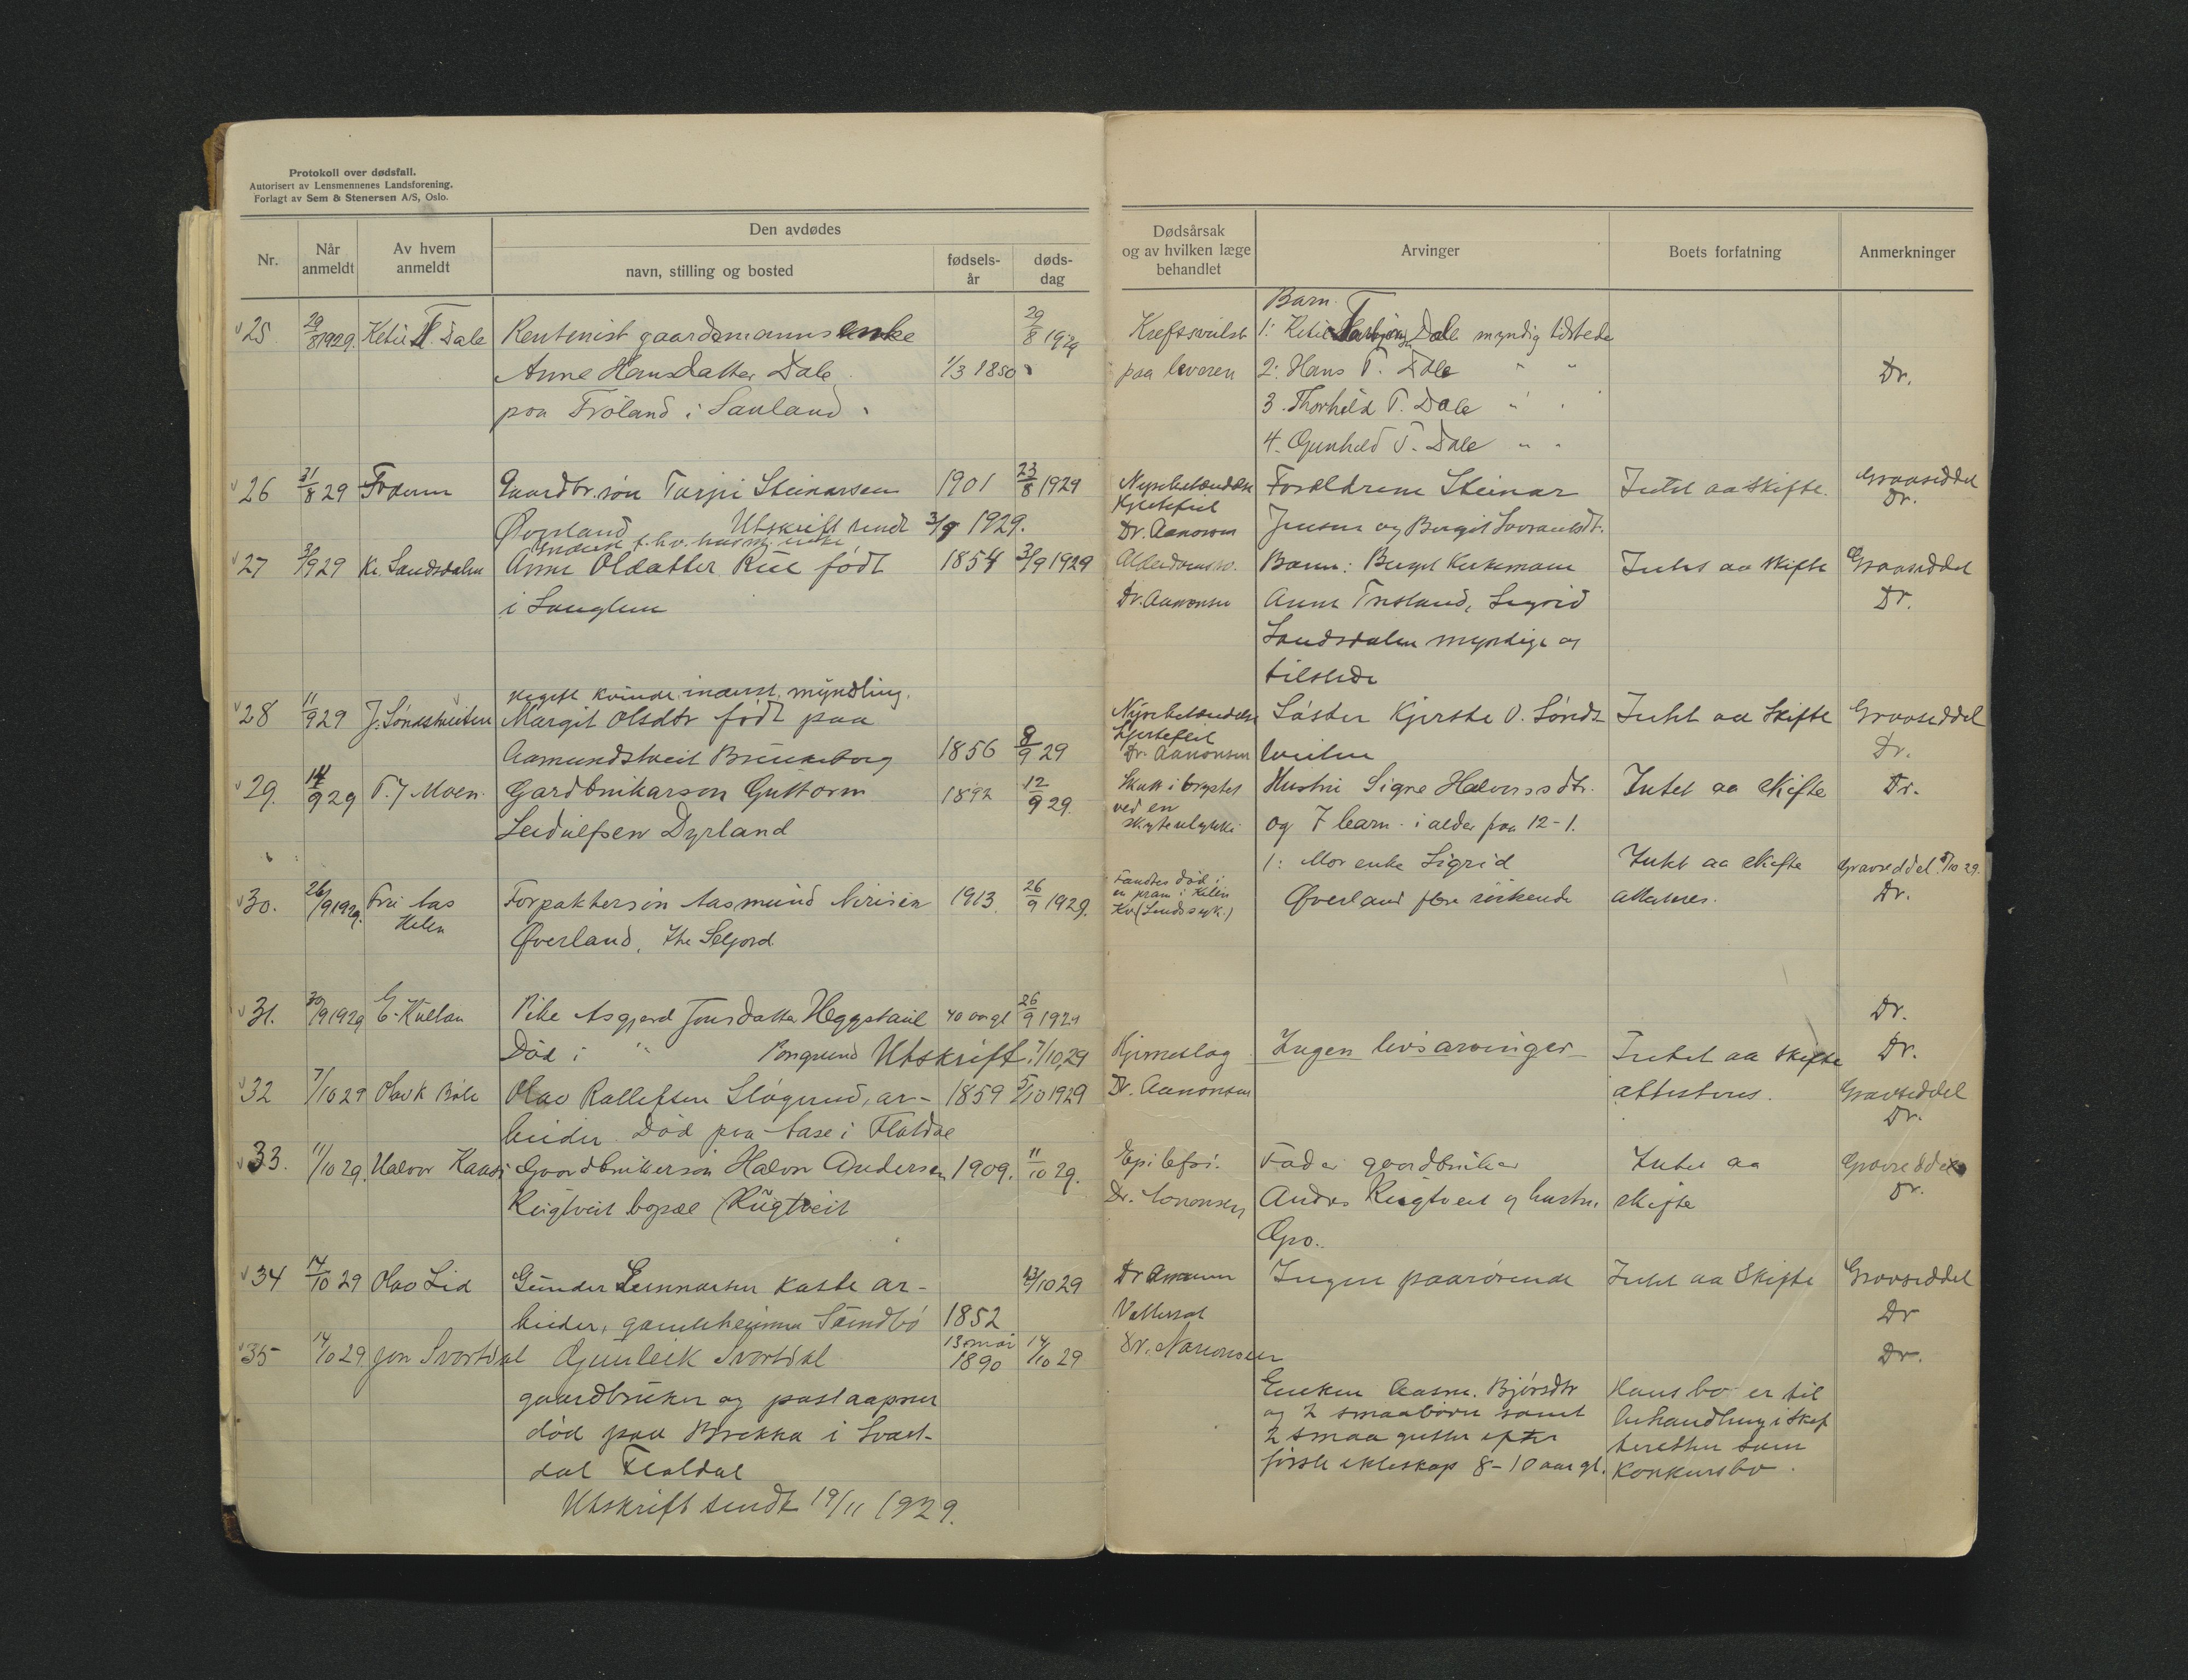 Protokoll over dødsfall.
Autorisert av Lensmennenes Landsforening.
Forlagt av Sem & Stenersen A/S, Oslo.
Nr.
Når anmeldt
Av hvem anmeldt
Den avdødes
navn, stilling og bosted
fødsels-år
døds-dag
Dødsårsak og av hvilken læge behandlet
Arvinger
Boets forfatning
Anmerkninger
25 29/8 1929. Ketil T. Dale Rentenist gaardsmanns enke 29/8 1929
Anne Hansdatter Dale 1/3 1850
paa Fröland i Sauland
Barn
Kreftsvulst 1: Ketil Dale myndig tilstede
paa leveren 2: Hans T. Dale " " Dr.
3. Thorhild T. Dale " "
4. Gunhild T. Dale " "
26 31/8 29 Gaardbr. søn Tarjei Steinarsen 1901 23/8 1929
Øverland Utskrift sendt 3/9 1929.
Nyrebetændelse Forældrene Steinar Intet aa skifte. Gravseddel
Hjertefeil Dr.
Dr. Aanonsen Jensen og Bergit
27 3/9 29 Kr. Sandsdalen Anne Olsdatter Rue født 1854 3/9 1929
i
Dr. Aanonsen Barn: Bergit Intet aa skifte Gravseddel
Anne Sigrid Dr.
Sandsdalen myndige og
tilstede
ugift kvinde inderst myndling.
28 11/9 29 J. Søndstveiten Margit Olsdtr født paa
Aamundstveit Brunkeberg 1856 8/9 29
Nyrebetændelse Søster Kjerste O. Sønds Intet aa skifte Gravseddel
Hjertefeil
Dr. Aanonsen tveiten Dr.
29. 14/9 29 T. J. Moen. Gardbrukarson Guttorm 1892 12/9 29.
Leidulfsen Dyrland
Skutt i brystet Hustru Signe Halvorsdtr. Intet aa skifte Dr.
ved en
skyteulykke og 7 barn i alder fra 12-1.
30. 26/9 1929. Fru Aas Forpaktersøn Aasmund 1913 26/9 1929.
Helen
Øverland, Seljord
Fandtes død i 1: Mor enke Sigrid Intet aa skifte Gravseddel 5/10 29.
en pram i
Øverland attesteres. Dr.
31. 30/9 1929 Pike Asgjerd Jonsdatter Heggstaul 40 aar gl 26/9 1929 Dr.
Død i " Utskrift 7/10,29
32 7/10 29 Olav K Bøle Olav Rollefsen ar- 1859 5/10 1929
beider. Død paa Aase i Flatdal
Hjerneslag Ingen livsarvinger Intet aa skifte Dr.
Dr. Aanonsen attesteres. Gravseddel
Dr.
33. 11/10 29. Halvor Gaardbrukersøn Halvor Andersen 1909. 11/10 29.
Rugtveit bopæl Rugtveit
Epilepsi. Fader gaardbruker Intet aa Gravseddel
Dr. Aanonsen Anders Rugtveit og hustru skifte Dr.
Gro.
34 14/10 29 Olav Lid Gunder Gunnarsen Kaste ar- 13/10 29
beider, gamleheimen Sundbø 1852
Dr Aanonsen Ingen paarørende Intet aa skifte Gravseddel
Vattersot Dr
35 14/10 29 Jon Svartdal Gunleik Svartdal 13 mai 1890 14/10 29
gaardbruker og postaapner
død paa Brekka i Svart-
dal Flatdal
Utskrift sendt 19/11 1929.
Dr. Aanonsen Dr.
Enken Aasne Bjørsdtr Hans bo er til
og 2 smaabørn samt behandling i Skif
2 smaa gutter efter teretten som
første ekteskap 8-10 aar gl. Konkursbo.